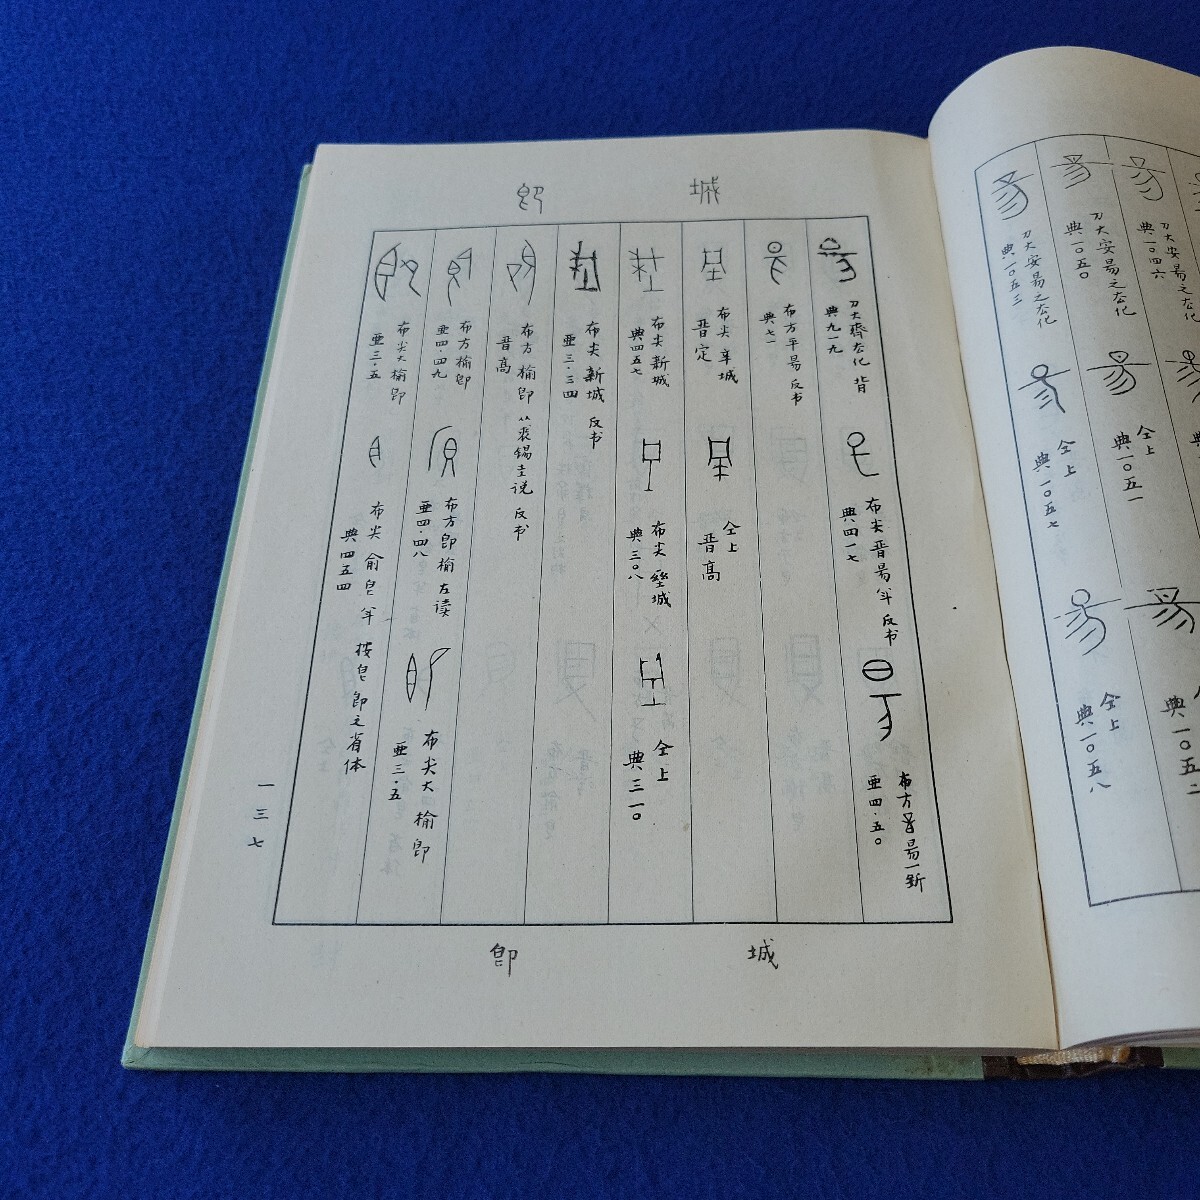 城
即
刀大齊厺化 背
典九一九
布尖晋昜半 反书
典四一七
亜四·五〇
布方平昜 反书
典七一
布尖辛城
晋定
仝上
晋高
布尖新城
典四五七
布尖壆城
典三〇八
仝上
典三一〇
布尖新城 反书
亜三·三四
布方榆即 从裘锡圭说 反书
晋高
布方榆即
亜四·四九
布方即榆 左读
亜四·四八
布尖大榆即
亜三·五
布尖大榆即
亜三·五
布尖俞皀半 按皀即之省体
典四五四
城
即
一三七
刀大安昜之厺化
典一〇四六
刀大安昜之厺化
典一〇五〇
仝上
典一〇五一
典一〇五二
刀大安昜之厺化
典一〇五三
仝上
典一〇五七
仝上
典一〇五八